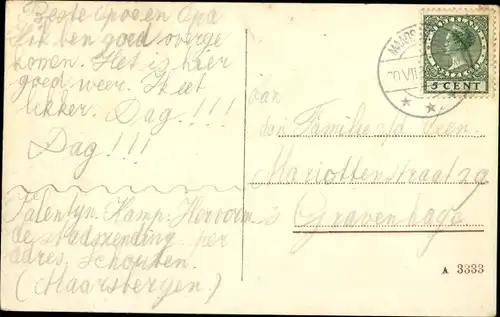 Beste Opoe en Opa
Ik ben goed overge
komen. Het is hier
goed weer. Ik eet
lekker. Dag!!!
Dag!!!
Kamp: Hervorm
de stadszending per
adres. Schouten.
(Maarsbergen)
NEDERLAND
5 CENT
MAARS
VII
aan
den Familie v/d Veen.
Mariottenstraat 29
's Gravenhage
A 3333